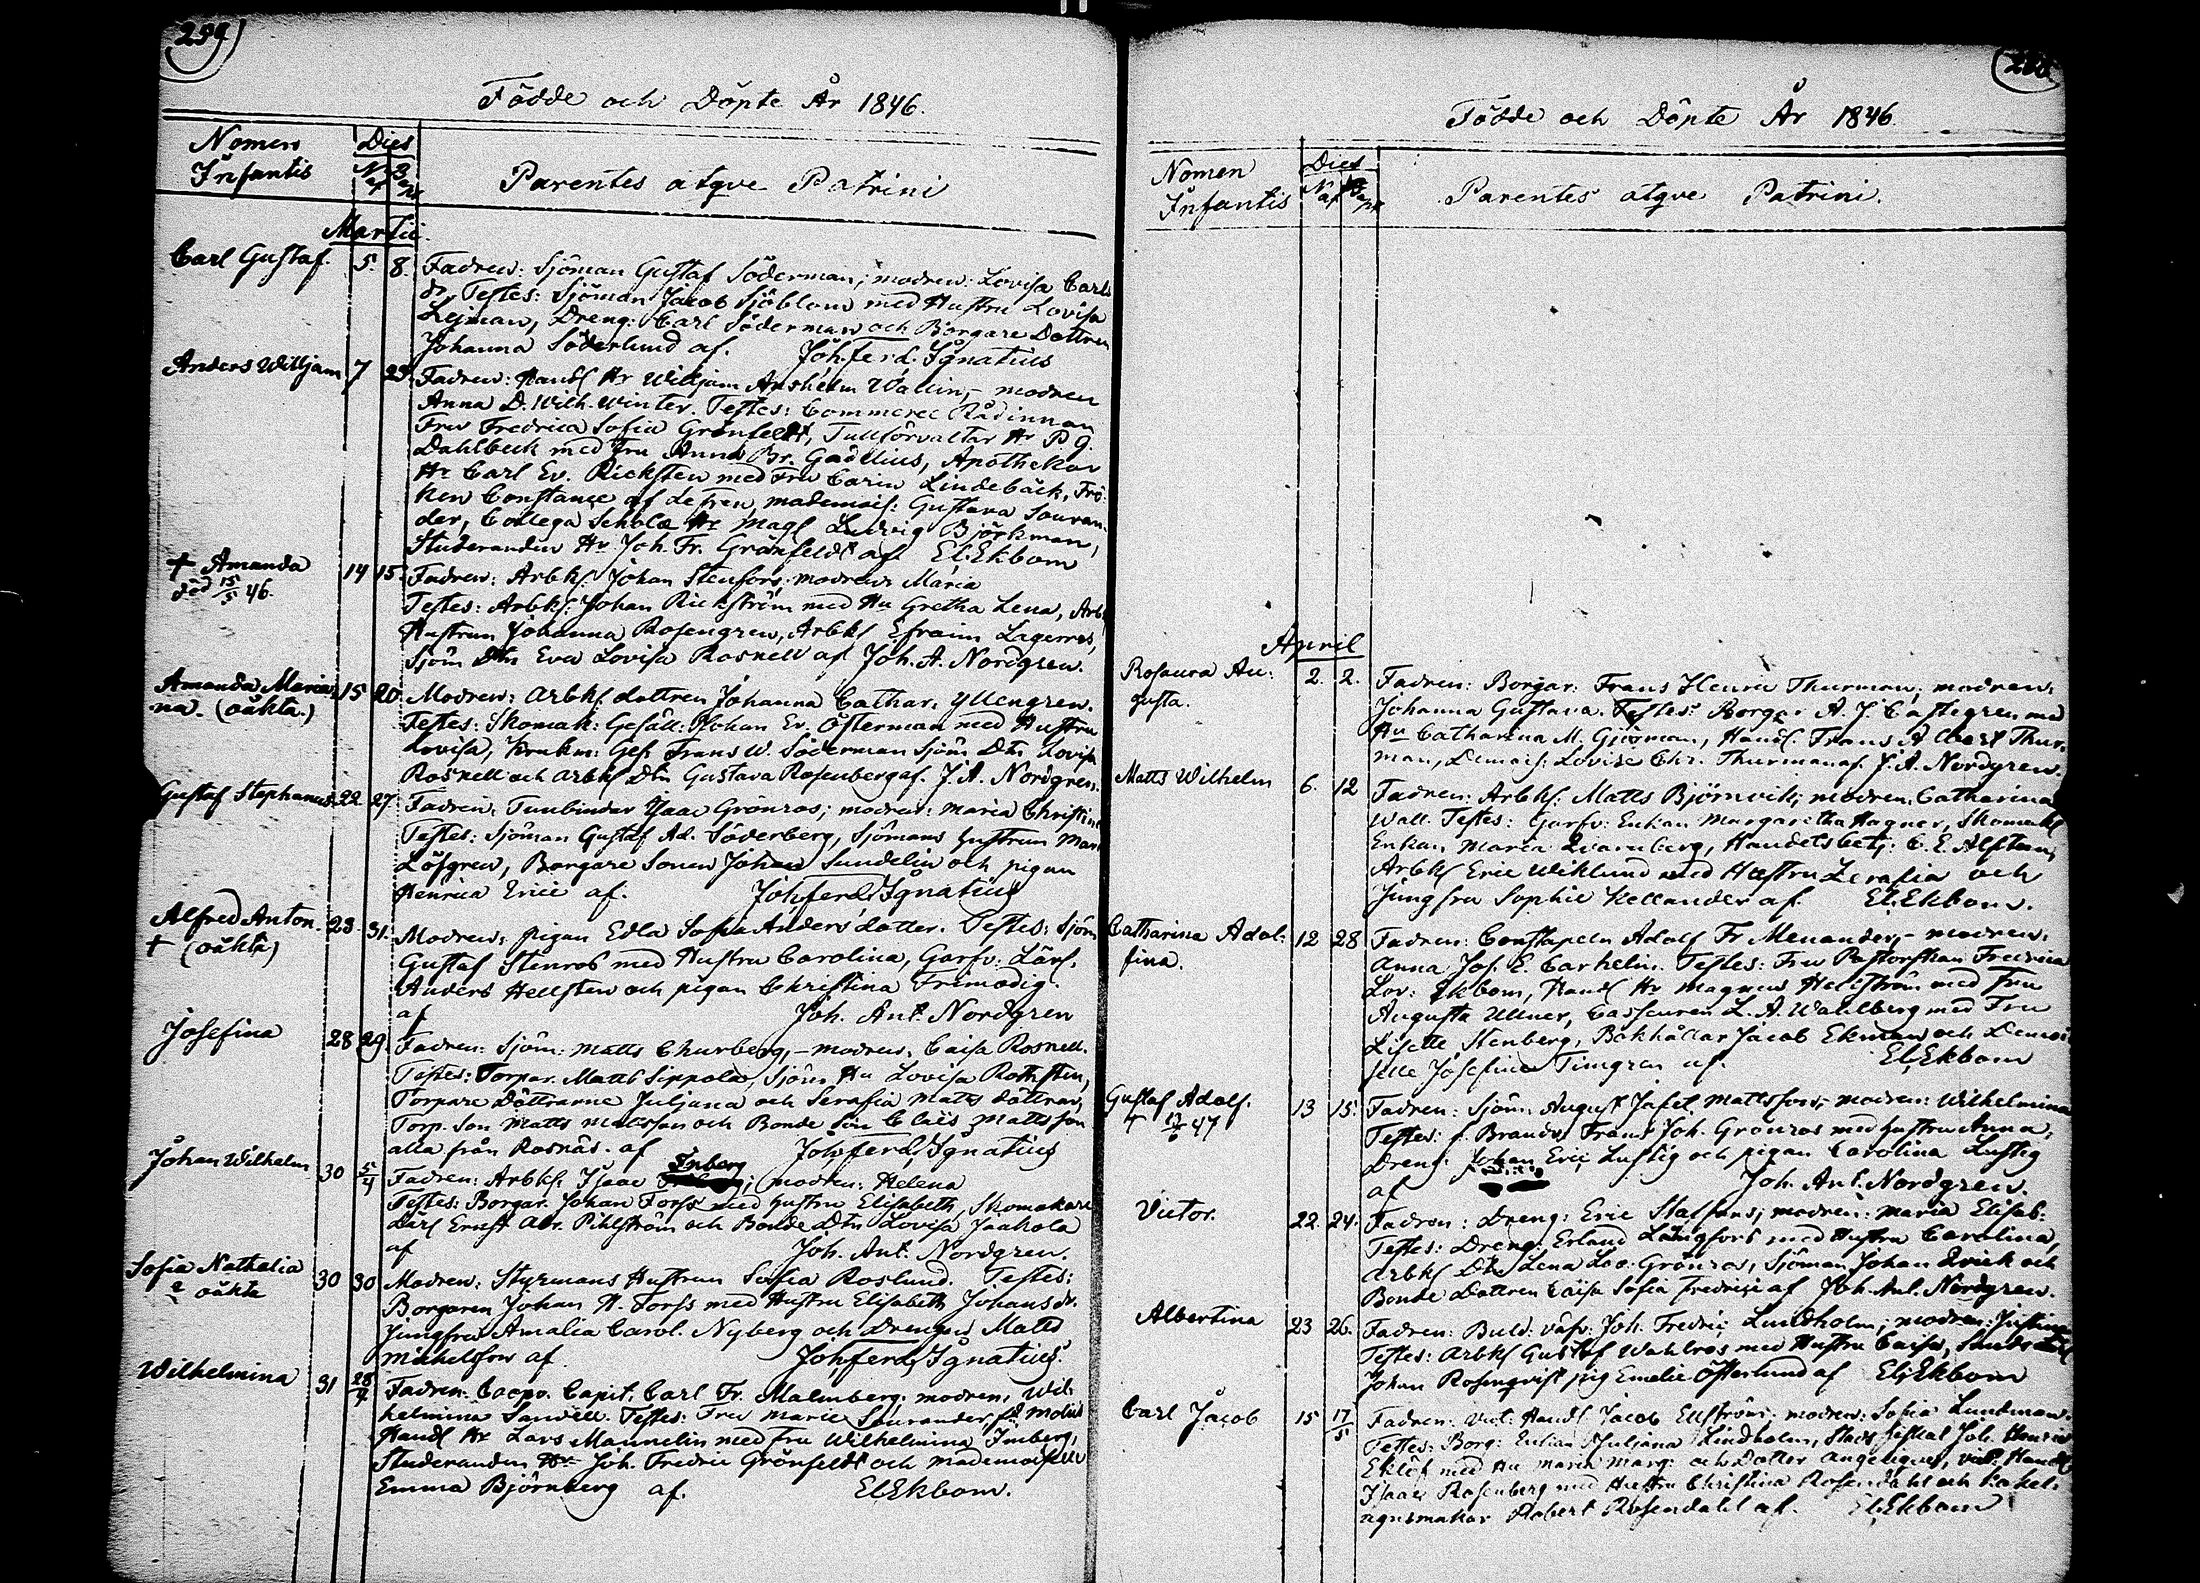 254
Födde och Döpte År 1846.
Nomen Infantis
Dies
Nat Bapt
Parentes atqve Patrini
Martii
Carl Gustaf. 5. 8. Fadren: Sjöman Gustaf Söderman; modren: Lovisa Carls
dr. Testes: Sjöman Jacob Sjöblom med Hustru Lovisa
Lejman, Dreng: Carl Söderman och Borgare Dottren
Johanna Söderlund af. Joh. ferd. Ignatius
Anders Willjam 7 23. Fadren: Handl Hr Willjam Anshelm Wallin, - modren
Anna D. Wilh. Winter. Testes: Commerce Rådinnan
Fru Fredrica Sofia Grönfeldt, Tullförvaltar Hr P G.
Dahlbeck med Fru Anna Br. Gadelius, Apothekar
Hr Carl Ev. Ricksten med Fru Carin Lindebäck, Frö-
ken Constance af Lefren, mademois: Gustava Souran-
der, Collega Scholæ Hr Mag Ludvig Björkman,
Studeranden Hr Joh. Fr. Grönfeldt af El. Ekbom
† Amanda 14 15. Fadren: Arbk. Johan Stenfors; modren: Maria
död 15/5 46. Testes: Arbks. Johan Rickström med Hu Gretha Lena, Arbk
Hustrun Johanna Rosengren, Arbks Efraim Lagerros,
Sjöm Dtn Eva Lovisa Rosnell af Joh. A. Nordgren.
Amanda Maria 15 20. Modren: Arbks dottren Johanna Cathar. Yllengren.
na. (oäkta.) Testes: Skomak: Gesäll: Johan Ev. Österman med Hustru
Lovisa, Krukm: Ges Frans W. Söderman Sjöm Dtn Lovisa
Rosnell och Arbks Dtn Gustava Rosenberg af. J. A. Nordgren.
Gustaf Stephanus. 22. 27. Fadren: Tunbindar Isaac Grönros; modren: Maria Christina
Testes: Sjöman Gustaf Ad. Söderberg, Sjömans Hustrun Mari
Löfgren, Borgare Sonen Johan Sundelin och pigan
Henrica Eric af. Joh. ferd. Ignatius
Alfred Anton. 23. 31. Modren: pigan Edla Sofia Anders dotter. Testes: Sjöm
† (oäkta) Gustaf Stenros med Hustru Carolina, Garfv: Lärl.
Anders Hellsten och pigan Christina Frimodig.
af Joh. Ant. Nordgren
Josefina 28 29. Fadren: Sjöm: Matts Churberg, - modren: Caisa Rosnell.
Testes: Torpar. Matts Sippola, Sjöm Hu Lovisa Rothsten,
Torpare Döttrarne Juljana och Serafia Matts döttrar,
Torp. Son Matts Matsson och Bonde Son Claës Mattsson
alla från Rosnäs. af Joh. ferd. Ignatius
Johan Wilhelm 30 5/4 Fadren: Arbks. Isaac Inberg; modren: Helena
Testes: Borgar. Johan Forss med Hustru Elisabeth, Skomakare
Lärl Ernst Abr. Pihlström och Bonde Dtn Lovisa Jaakola
af Joh. Ant. Nordgren.
Sofia Nathalia 30 30 Modren: Styrmans Hustrun Sofia Roslund. Testes:
oäkta Borgaren Johan H. Forss med Hustru Elisabeth Johansdr.
Jungfru Amalia Carol. Nyberg och Drengen Matts
Mickelsson af Joh. ferd. Ignatius.
Wilhelmina 31 28/4 Fadren: Coopv. Capit. Carl Fr. Malmberg; modren, Wil-
helmina Sanvell. Testes: Fru Marie Sourander,
Handl Hr Lars Mannelin med Fru Wilhelmina Imberg,
Studeranden Hr Joh. Fredric Grönfeldt och mademoiselle
Emma Björnberg af. El Ekbom.
Födde och Döpte År 1846.
Nomen Infantis
Dies
Nat Bapt
Parentes atqve Patrini.
April
Rosaura Au- 2. 2. Fadren: Borgar: Frans Henric Thurman, modren:
gusta. Johanna Gustava. Testes: Borgar A. J. Castegren med
Hu Catharina M. Gjöman, Handl. Frans Albert Thur-
man, Demois: Lovise Chr. Thurman af. J. A. Nordgren.
Matts Wilhelm 6. 12 Fadren: Arbks: Matts Björnvik; modren: Catharina
Wall. Testes: Garfv: Enkan Margaretha Hagner, Skomaks
Enkan Maria Qvarnberg, Handelsbetj: C. E. Alftan,
Arbks Eric Wiklund med Hustru Serafia och
Jungfru Sophie Hellander af. El. Ekbom.
Catharina Adol- 12 28 Fadren: Constapeln Adolf Fr Menander, - modren:
fina. Anna Jos. E. Carhelin. Testes: Fru Pastorskan Fredrica
Lov: Ekbom, Handl Hr Magnus Hellström med Fru
Augusta Ullner, Casseuren L. A. Wahlberg med Fru
Lisette Stenberg, Bokhållar Jacob Ekman och Demoi-
selle Josefine Timgren af. El. Ekbom
Gustaf Adolf. 13 15. Fadren: Sjöm: August Jafet Mattsson; modren: Wilhelmina
† 13/6 47 Testes: f. Brandv Frans Joh. Grönros med Hustru Anna,
Dreng. Johan Eric Lustig och pigan Carolina Lustig
af Joh. Ant. Nordgren.
Victor. 22. 24. Fadren: Dreng: Eric Staffans; modren: Maria Elisab:
Testes: Dreng: Erland Långfors med Hustru Carolina,
Arbks Dtr Lena Lov. Grönros, Sjöman Johan Qvick och
Bonde Dottren Caisa Sofia Fredrics af Joh. Ant. Nordgren.
Albertina 23 26. Fadren: Buld. väfv: Joh. Fredric Lundholm; modren: Justina
Testes: Arbks Gustaf Wahlros med Hustru Caisa,
Johan Rosenqvist pig Emelie Österlund af El. Ekbom
Carl Jacob 15 17/5 Fadren: Vict. Handl Jacob Ellström; modren: Sofia Lundman.
Testes: Borg: Enkan Juljana Lindholm, Stads fiskal Joh. Henric
Eklöf med Hu Maria Marg: och Dotter Angelique, vict. Handl
Isaac Rosenberg med Hustru Christina Rosendahl och Kakel-
ugnsmakar Robert Rosendahl af. El. Ekbom